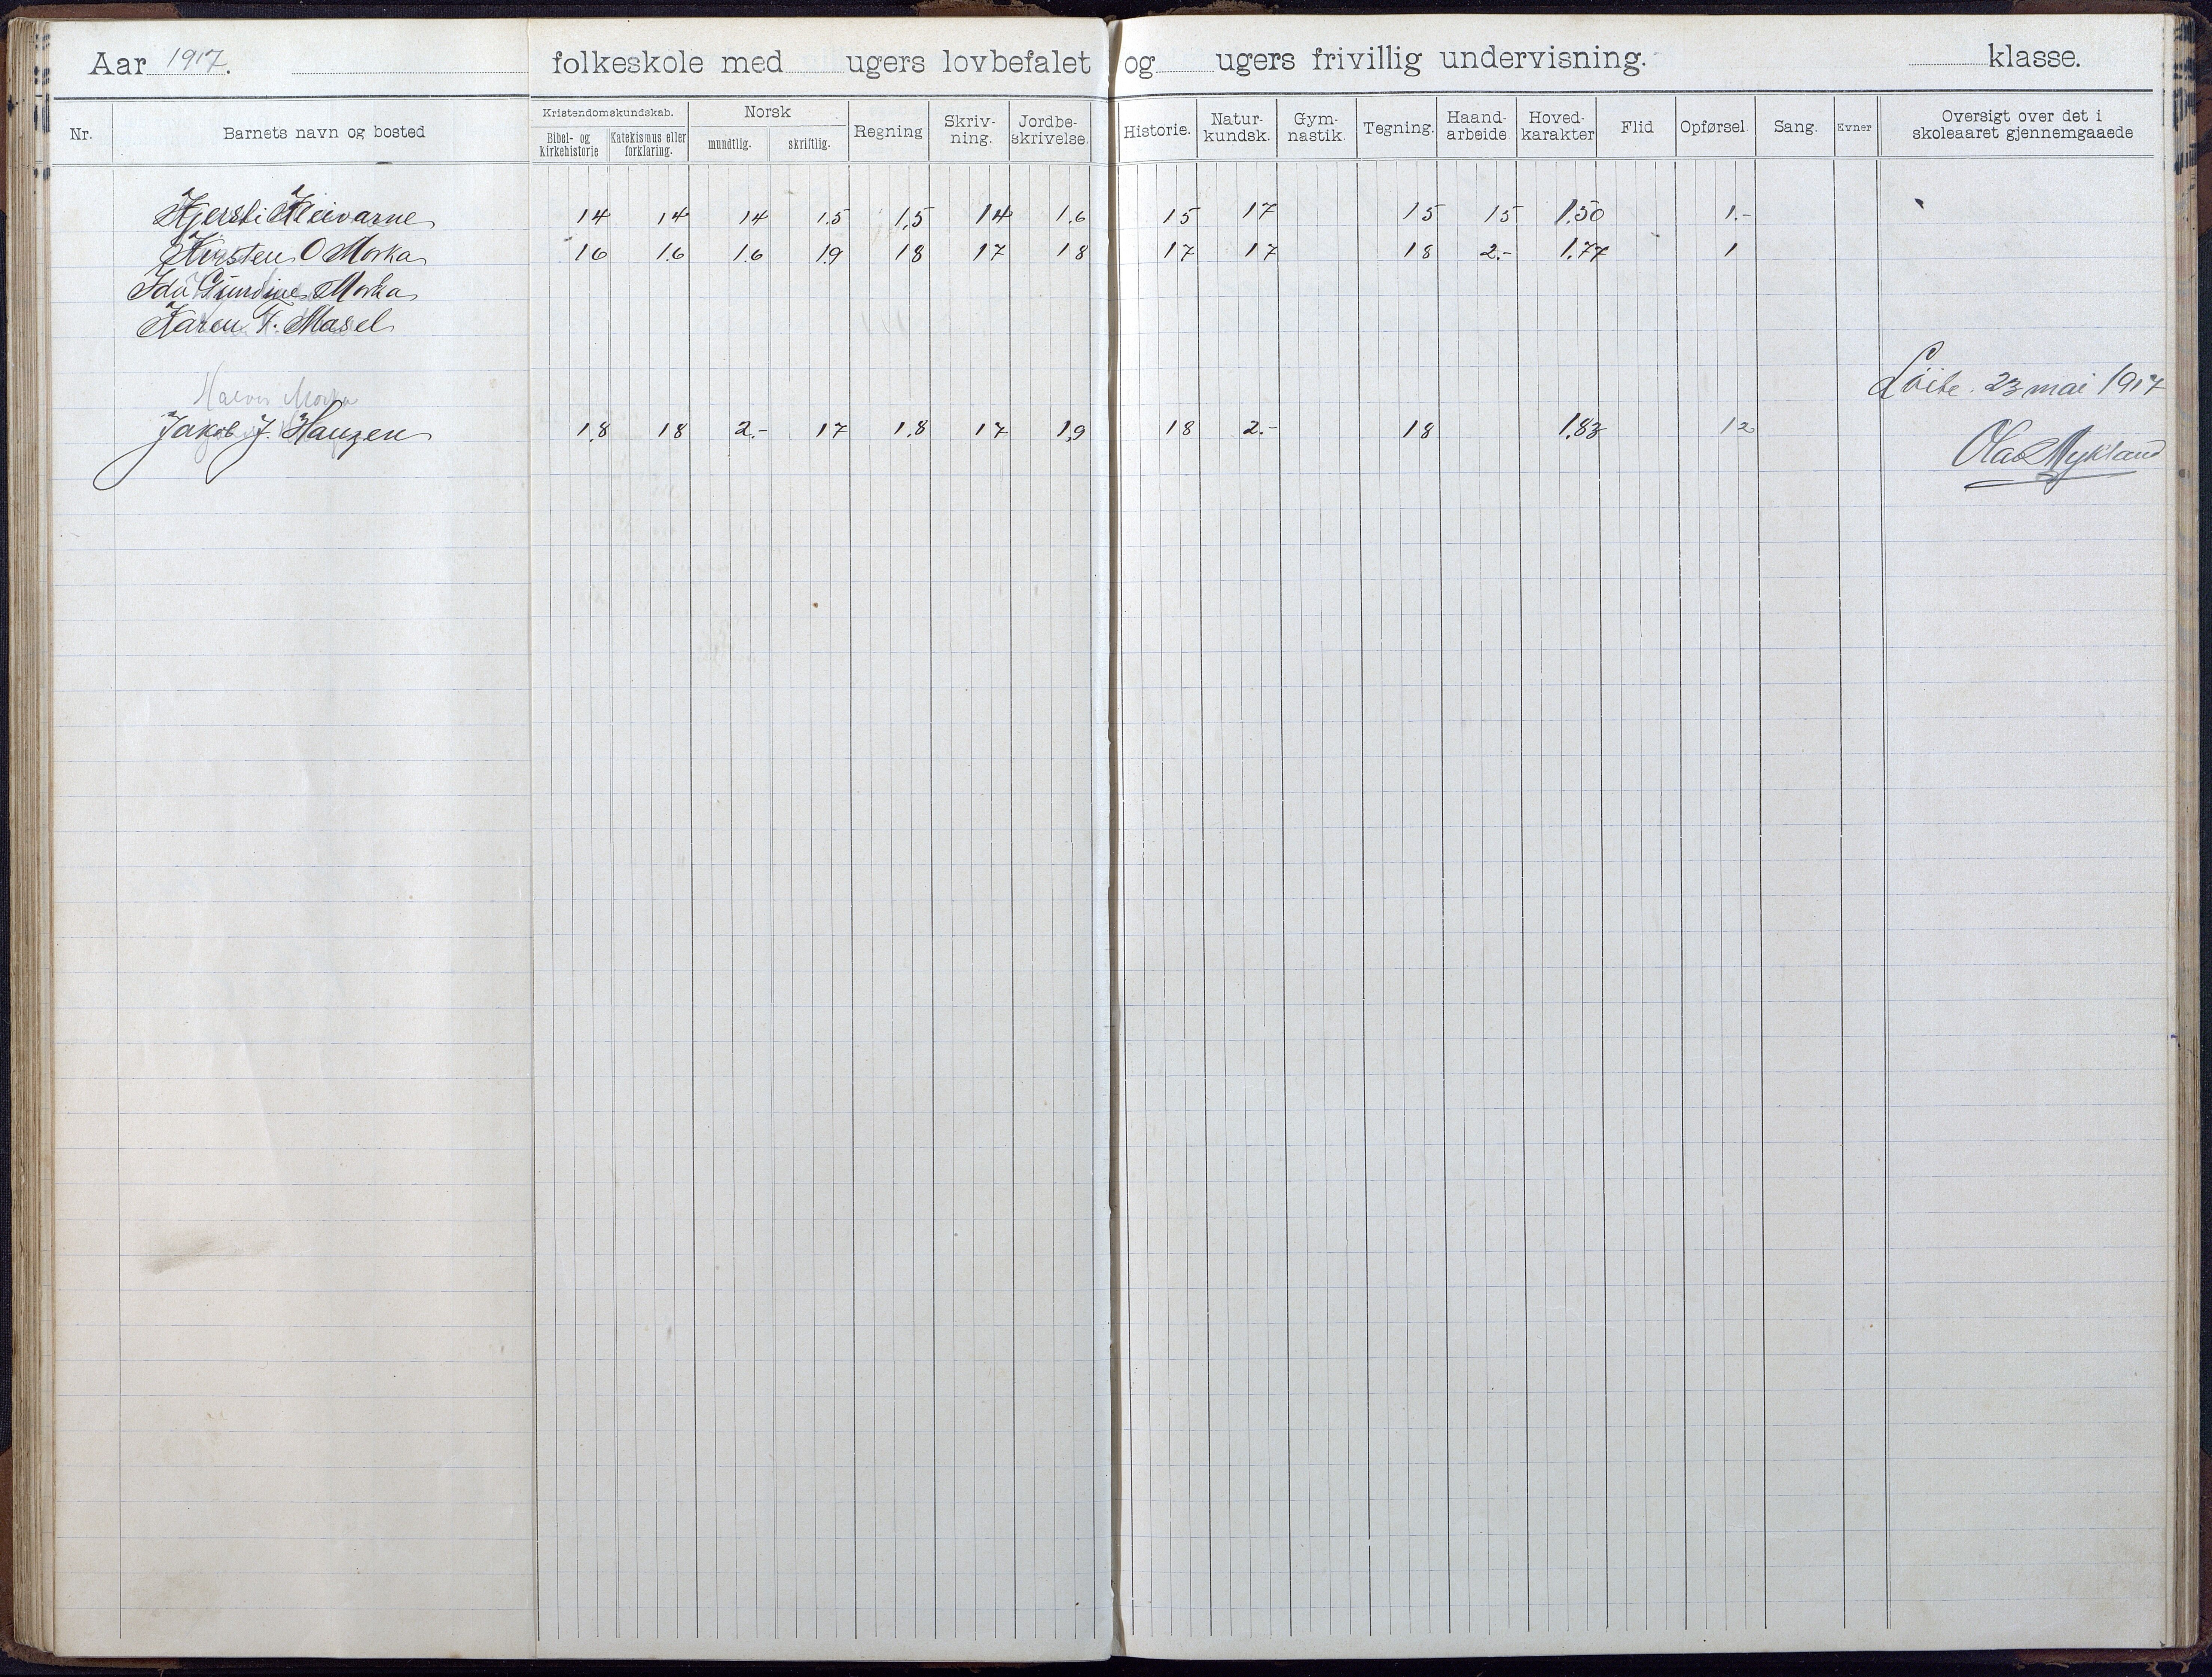 Aar 1917. folkeskole med ugers lovbefalet og ugers frivillig undervisning. klasse.
Nr. Barnets navn og bosted Kristendomskundskab. Bibel- og kirkehistorie Katekismus eller forklaring. Norsk mundtlig. skriftlig. Regning Skriv-ning. Jordbe-skrivelse. Historie. Natur-kundsk. Gym-nastik. Tegning. Haand-arbeide. Hoved-karakter Flid Opførsel. Sang. Evner Oversigt over det i skoleaaret gjennemgaaede
Kjersti Kleivarne 14 14 14 1.5 1,5 14 1.6 15 17 15 15 1.50 1.-
Kirsten O Morka 16 1.6 1.6 1.9 18 17 18 17 17 18 2.- 1.77 1
Ida Gundine Morka
Karen T. Masel
Halvor Morka
Løite. 23 mai 1917
Jakob J. Haugen 1,8 18 2.- 17 1.8 17 1,9 18 2.- 18 1.83 12
Olav Mykland